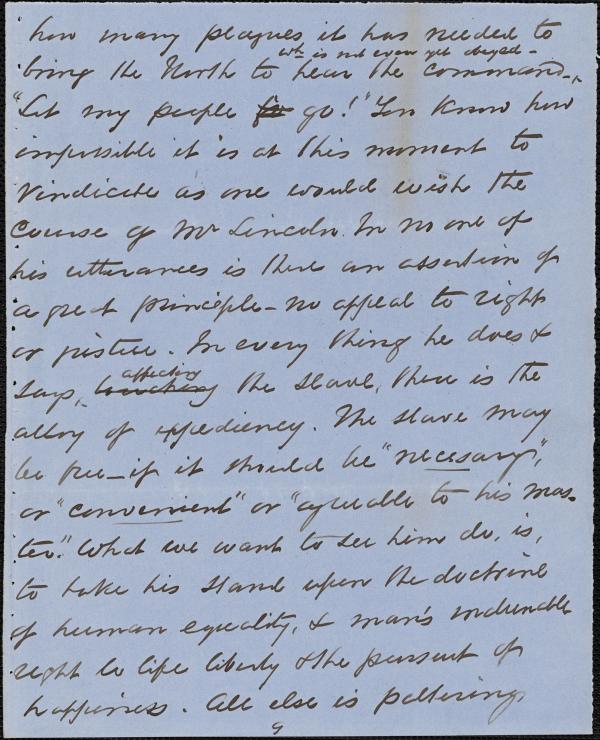 how many plagues it has needed to
wh. is not even yet obeyed -
bring the North to hear the command -,
"Let my people go!" You know how
impossible it is at this moment to
vindicate as one would wish the
course of Mr Lincoln. In no one of
his utterances is there an assertion of
a great principle - no appeal to right
or justice. In every thing he does &
affecting
says, touching the slave, there is the
alloy of expediency. The slave may
be free - if it should be "necessary",
or "convenient" or "agreeable to his mas-
ter." What we want to see him do, is,
to take his stand upon the doctrine
of human equality, & man's undeniable
right to life liberty & the pursuit of
happiness. All else is paltering
9